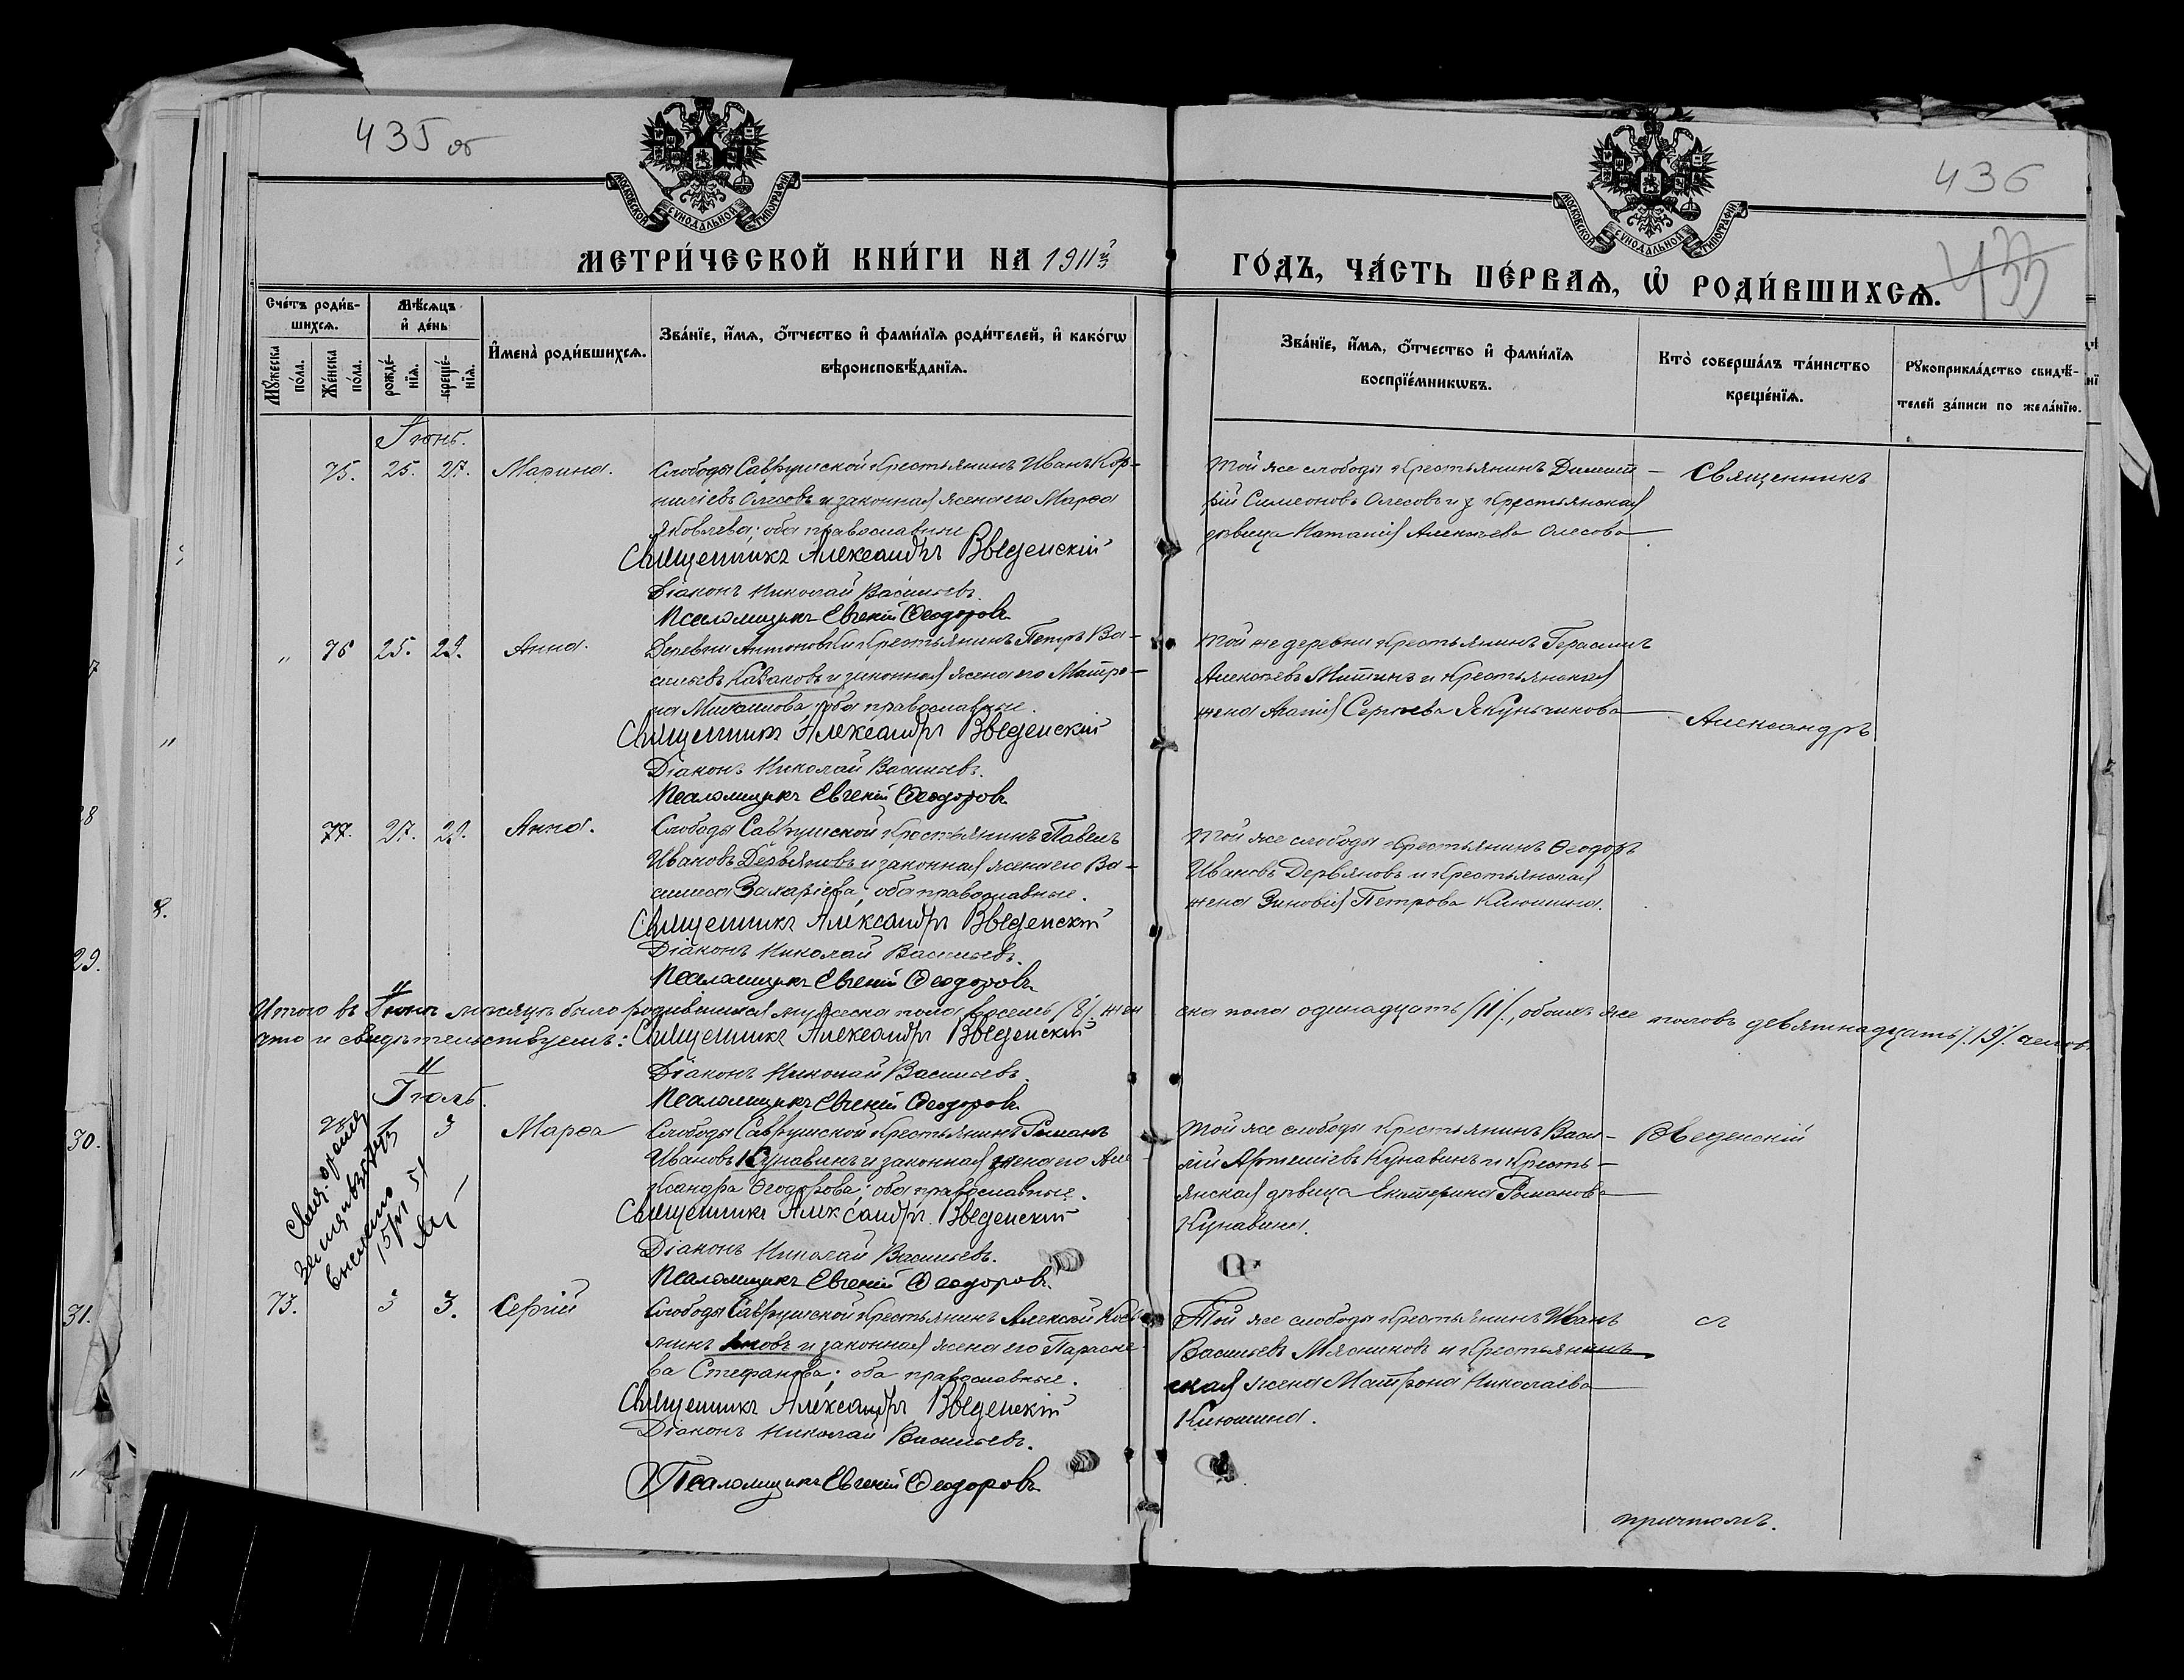 435 об
436
433
МОСКОВСКОЙ СѴНОДАЛЬНОЙ ТИПОГРАФІИ
МОСКОВСКОЙ СѴНОДАЛЬНОЙ ТИПОГРАФІИ
МЕТРИ́ЧЕСКОЙ КНИ́ГИ НА 1911й
ГО́ДЪ, ЧА́СТЬ ПЕ́РВАѦ, Ѡ҆ РОДИ́ВШИХСѦ.
Сче́тъ роди́в-
шихсѧ.
Мѣ́сѧцъ
и҆ де́нь
Мꙋ́жеска по́ла.
Же́нска по́ла.
рожде́-нїѧ.
креще́-нїѧ.
И҆мена̀ роди́вшихсѧ.
Зва́нїе, и҆́мѧ, ѻ҆́тчество и҆ фами́лїѧ роди́телей, и҆ како́гѡ
вѣроисповѣ́данїѧ.
Зва́нїе, и҆́мѧ, ѻ҆́тчество и҆ фами́лїѧ
воспрїе́мникѡвъ.
Кто̀ соверша́лъ та́инство
креще́нїѧ.
Рꙋкоприкла́дство свидѣ́-
телей за́писи по жела́нїю.
Іюнь.
75. 25. 27. Марина. Слободы Саврушской крестьянинъ Иванъ Кор-
ниліевъ Олесовъ и законная жена его Марѳа
Яковлева; оба православные
Священникъ Александръ Введенскій
Діаконъ Николай Васильевъ.
Псаломщикъ Евгеній Ѳеодоровъ
Той же слободы крестьянинъ Димит-
рій Симеоновъ Олесовъ и крестьянская
дѣвица Наталія Алексѣева Олесова
Священникъ
" 76 25. 29. Анна. Деревни Антоновки крестьянинъ Петръ Ва-
сильевъ Казаковъ и законная жена его Матро-
на Михаилова; оба православные.
Священникъ Александръ Введенскій
Діаконъ Николай Васильевъ.
Псаломщикъ Евгеній Ѳеодоровъ
Той же деревни крестьянинъ Герасимъ
Алексѣевъ Митинъ и крестьянская
жена Агапія Сергѣева Якунчикова
Александръ
77. 27. 29. Анна. Слободы Саврушской крестьянинъ Павелъ
Ивановъ Дервяновъ и законная жена его Ва-
силиса Захаріева; оба православные.
Священникъ Александръ Введенскій
Діаконъ Николай Васильевъ.
Псаломщикъ Евгеній Ѳеодоровъ
Той же слободы крестьянинъ Ѳеодоръ
Ивановъ Дервяновъ и крестьянская
жена Зиновія Петрова Клюшина.
Итого въ Іюнѣ мѣсяцѣ было родившихся мужеска пола восемь /8/. жен
ска пола одинадцать /11/., обоихъ же половъ девятнадцать /.19/. человѣ
что и свидѣтельствуемъ: Священникъ Александръ Введенскій
Діаконъ Николай Васильевъ.
Псаломщикъ Евгеній Ѳеодоровъ
Іюль.
78 1 3 Марѳа Слободы Саврушской крестьянинъ Романъ
Ивановъ Кунавинъ и законная жена его Але-
ксандра Ѳеодорова; оба православные.
Священникъ Александръ Введенскій
Діаконъ Николай Васильевъ.
Псаломщикъ Евгеній Ѳеодоровъ
Той же слободы крестьянинъ Васи-
лій Артеміевъ Кунавинъ и кресть-
янская дѣвица Екатерина Романова
Кунавина.
Введенскій
73. 3 3. Сергій Слободы Саврушской крестьянинъ Алексѣй Кось
минъ и законная жена его Параске
ва Стефанова; оба православные.
Священникъ Александръ Введенскій
Діаконъ Николай Васильевъ.
Псаломщикъ Евгеній Ѳеодоровъ
Той же слободы крестьянинъ Иванъ
Васильевъ Мясниковъ и крестьян
ская жена Матрона Николаева
Клюшина.
съ
причтомъ.
29.
30.
31.
8.